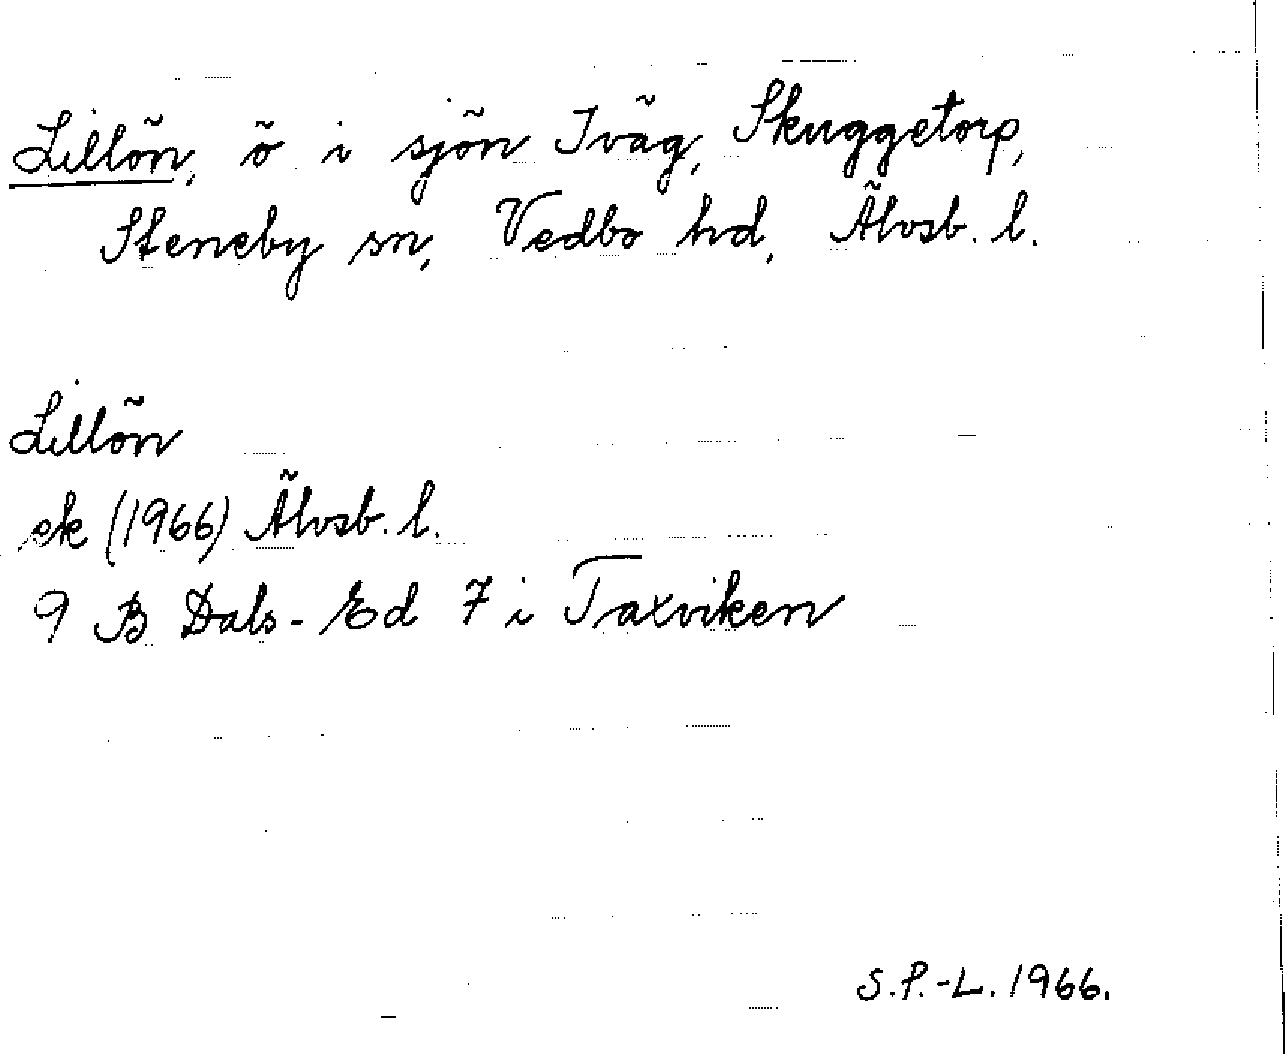 Lillön, ö i sjön Iväg, Skuggetorp,
Steneby sn, Vedbo hd, Älvsb. l.
Lillön
ek (1966) Älvsb. l.
9 B Dals-Ed 7 i Taxviken
S.P.-L. 1966.